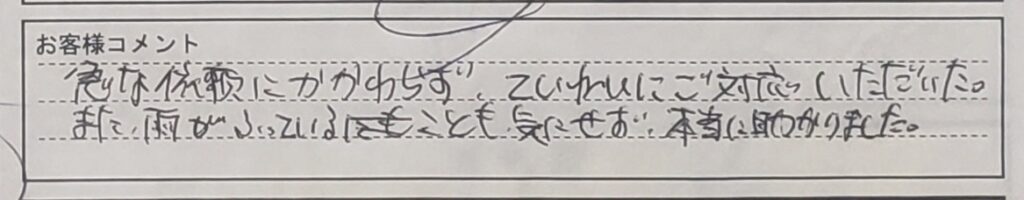 お客様コメント
急な依頼にかかわらず、ていねいにご対応いただいた。
また、雨がふっているにもことも気にせず、本当に助かりました。